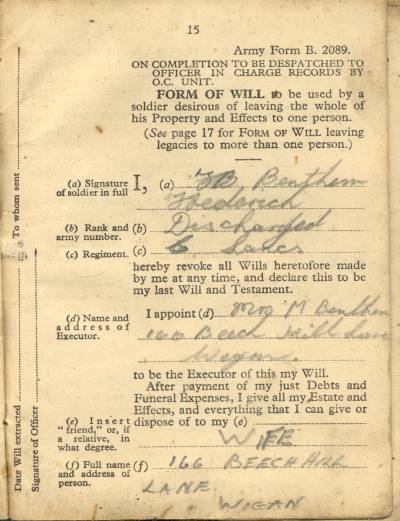 15
Army Form B. 2089.
ON COMPLETION TO BE DESPATCHED TO
OFFICER IN CHARGE RECORDS BY
O.C. UNIT.
FORM OF WILL to be used by a
soldier desirous of leaving the whole of
his Property and Effects to one person.
(See page 17 for FORM OF WILL leaving
legacies to more than one person.)
(a) Signature
of soldier in full
I, (a) Benthem
Frederick
(b) Rank and
army number.
(b) Discharged
(c) Regiment.
(c) 6 Lancs
hereby revoke all Wills heretofore made
by me at any time, and declare this to be
my last Will and Testament.
(d) Name and
address of
Executor.
I appoint (d) Mrs M Benthem
160 Beech Hill Lane
Wigan.
to be the Executor of this my Will.
After payment of my just Debts and
Funeral Expenses, I give all my Estate and
Effects, and everything that I can give or
dispose of to my (e)
(e) Insert
"friend," or, if
a relative, in
what degree.
WIFE
(f) Full name
and address of
person.
(f) 166 BEECH HILL
LANE
WIGAN
Date Will extracted
To whom sent
Signature of Officer